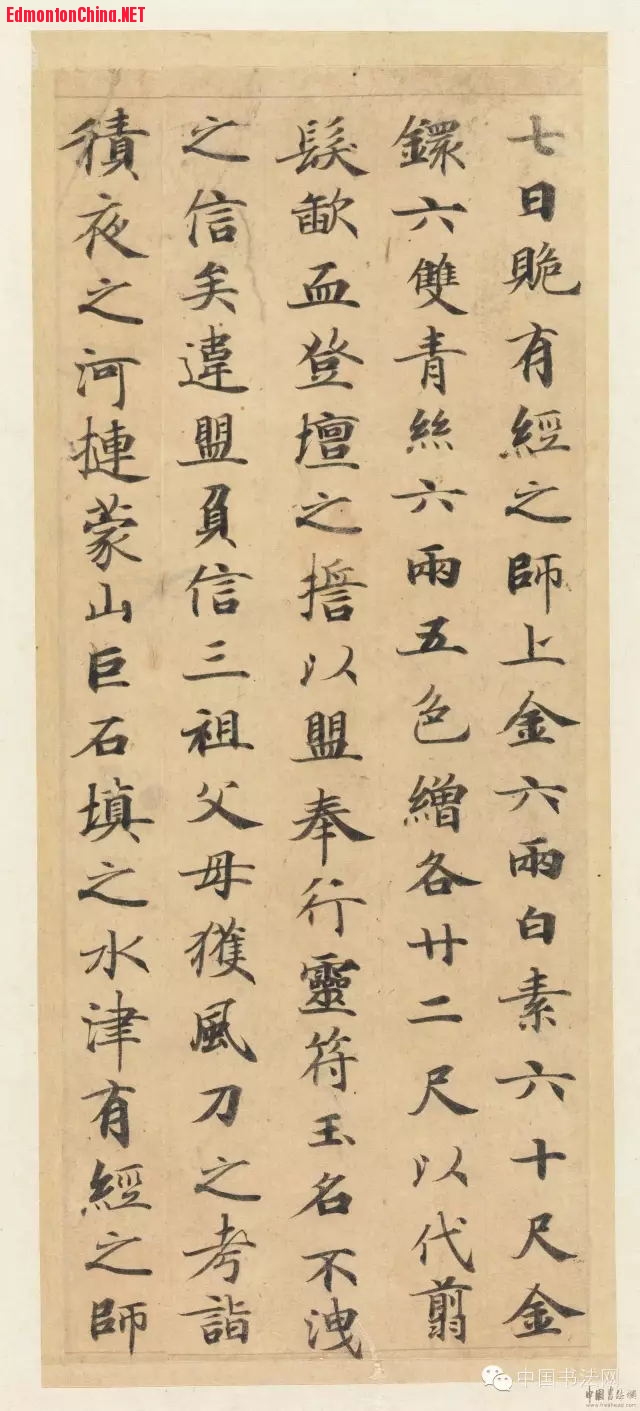 EdmontonChina.NET
七日跪有經之師上金六兩白素六十尺金
鐶六雙青絲六兩五色繒各廿二尺以代翦
髮歃血登壇之擔以盟奉行靈符玉名不洩
之信矣違盟負信三祖父母獲風刀之考詣
積夜之河摙蒙山巨石填之水津有經之師
中国书法网
中國書法網
www.freehead.com